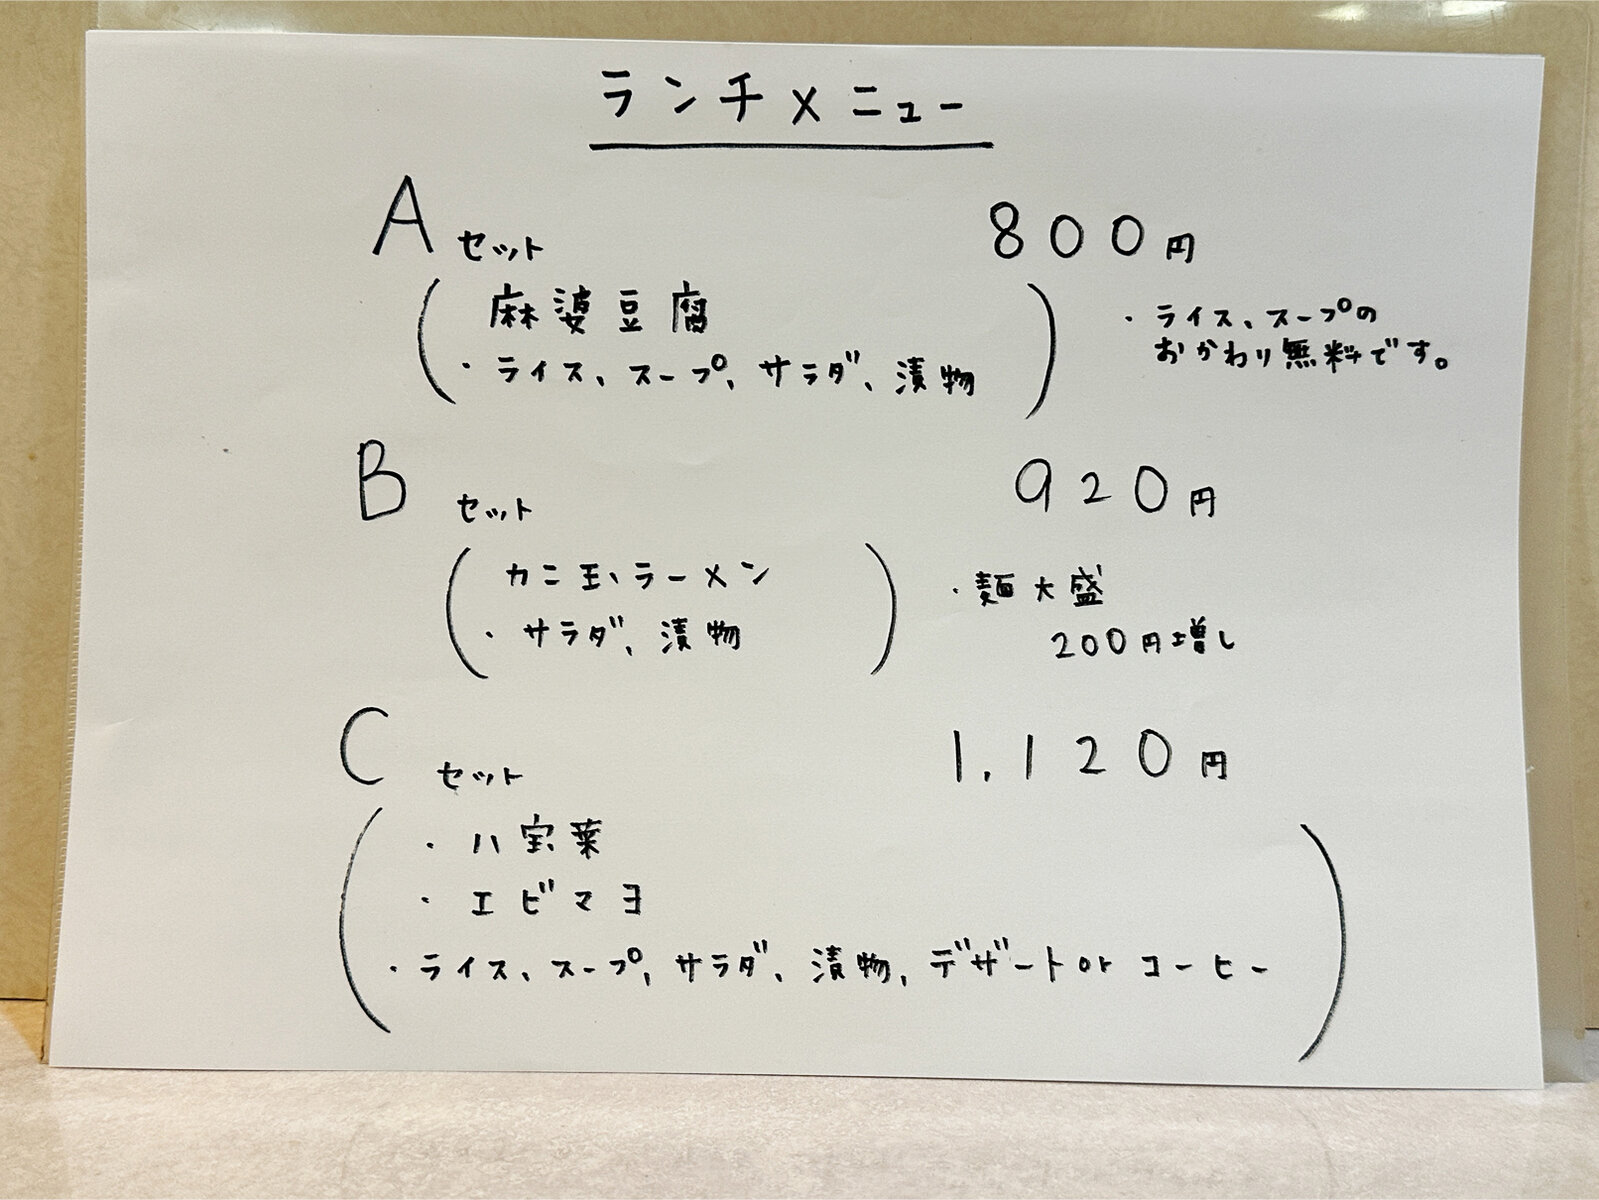 ランチメニュー
A セット 800円
麻婆豆腐
・ライス、スープ、サラダ、漬物
・ライス、スープの
おかわり無料です。
B セット 920円
カニ玉、ラーメン
・サラダ、漬物
・麺大盛
200円増し
C セット 1,120円
・八宝菜
・エビマヨ
・ライス、スープ、サラダ、漬物、デザートorコーヒー